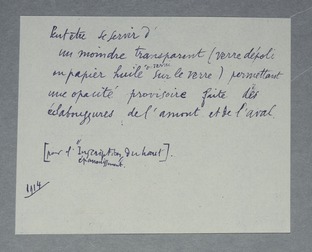 Peut être se servir d'
un moindre transparent (verre dépoli
ou papier huilé sur le verre) permettant
une opacité provisoire faite des
éclaboussures de l'amont et de l'aval.
[pour l'"Inscription du haut].
épanouissement.
1914